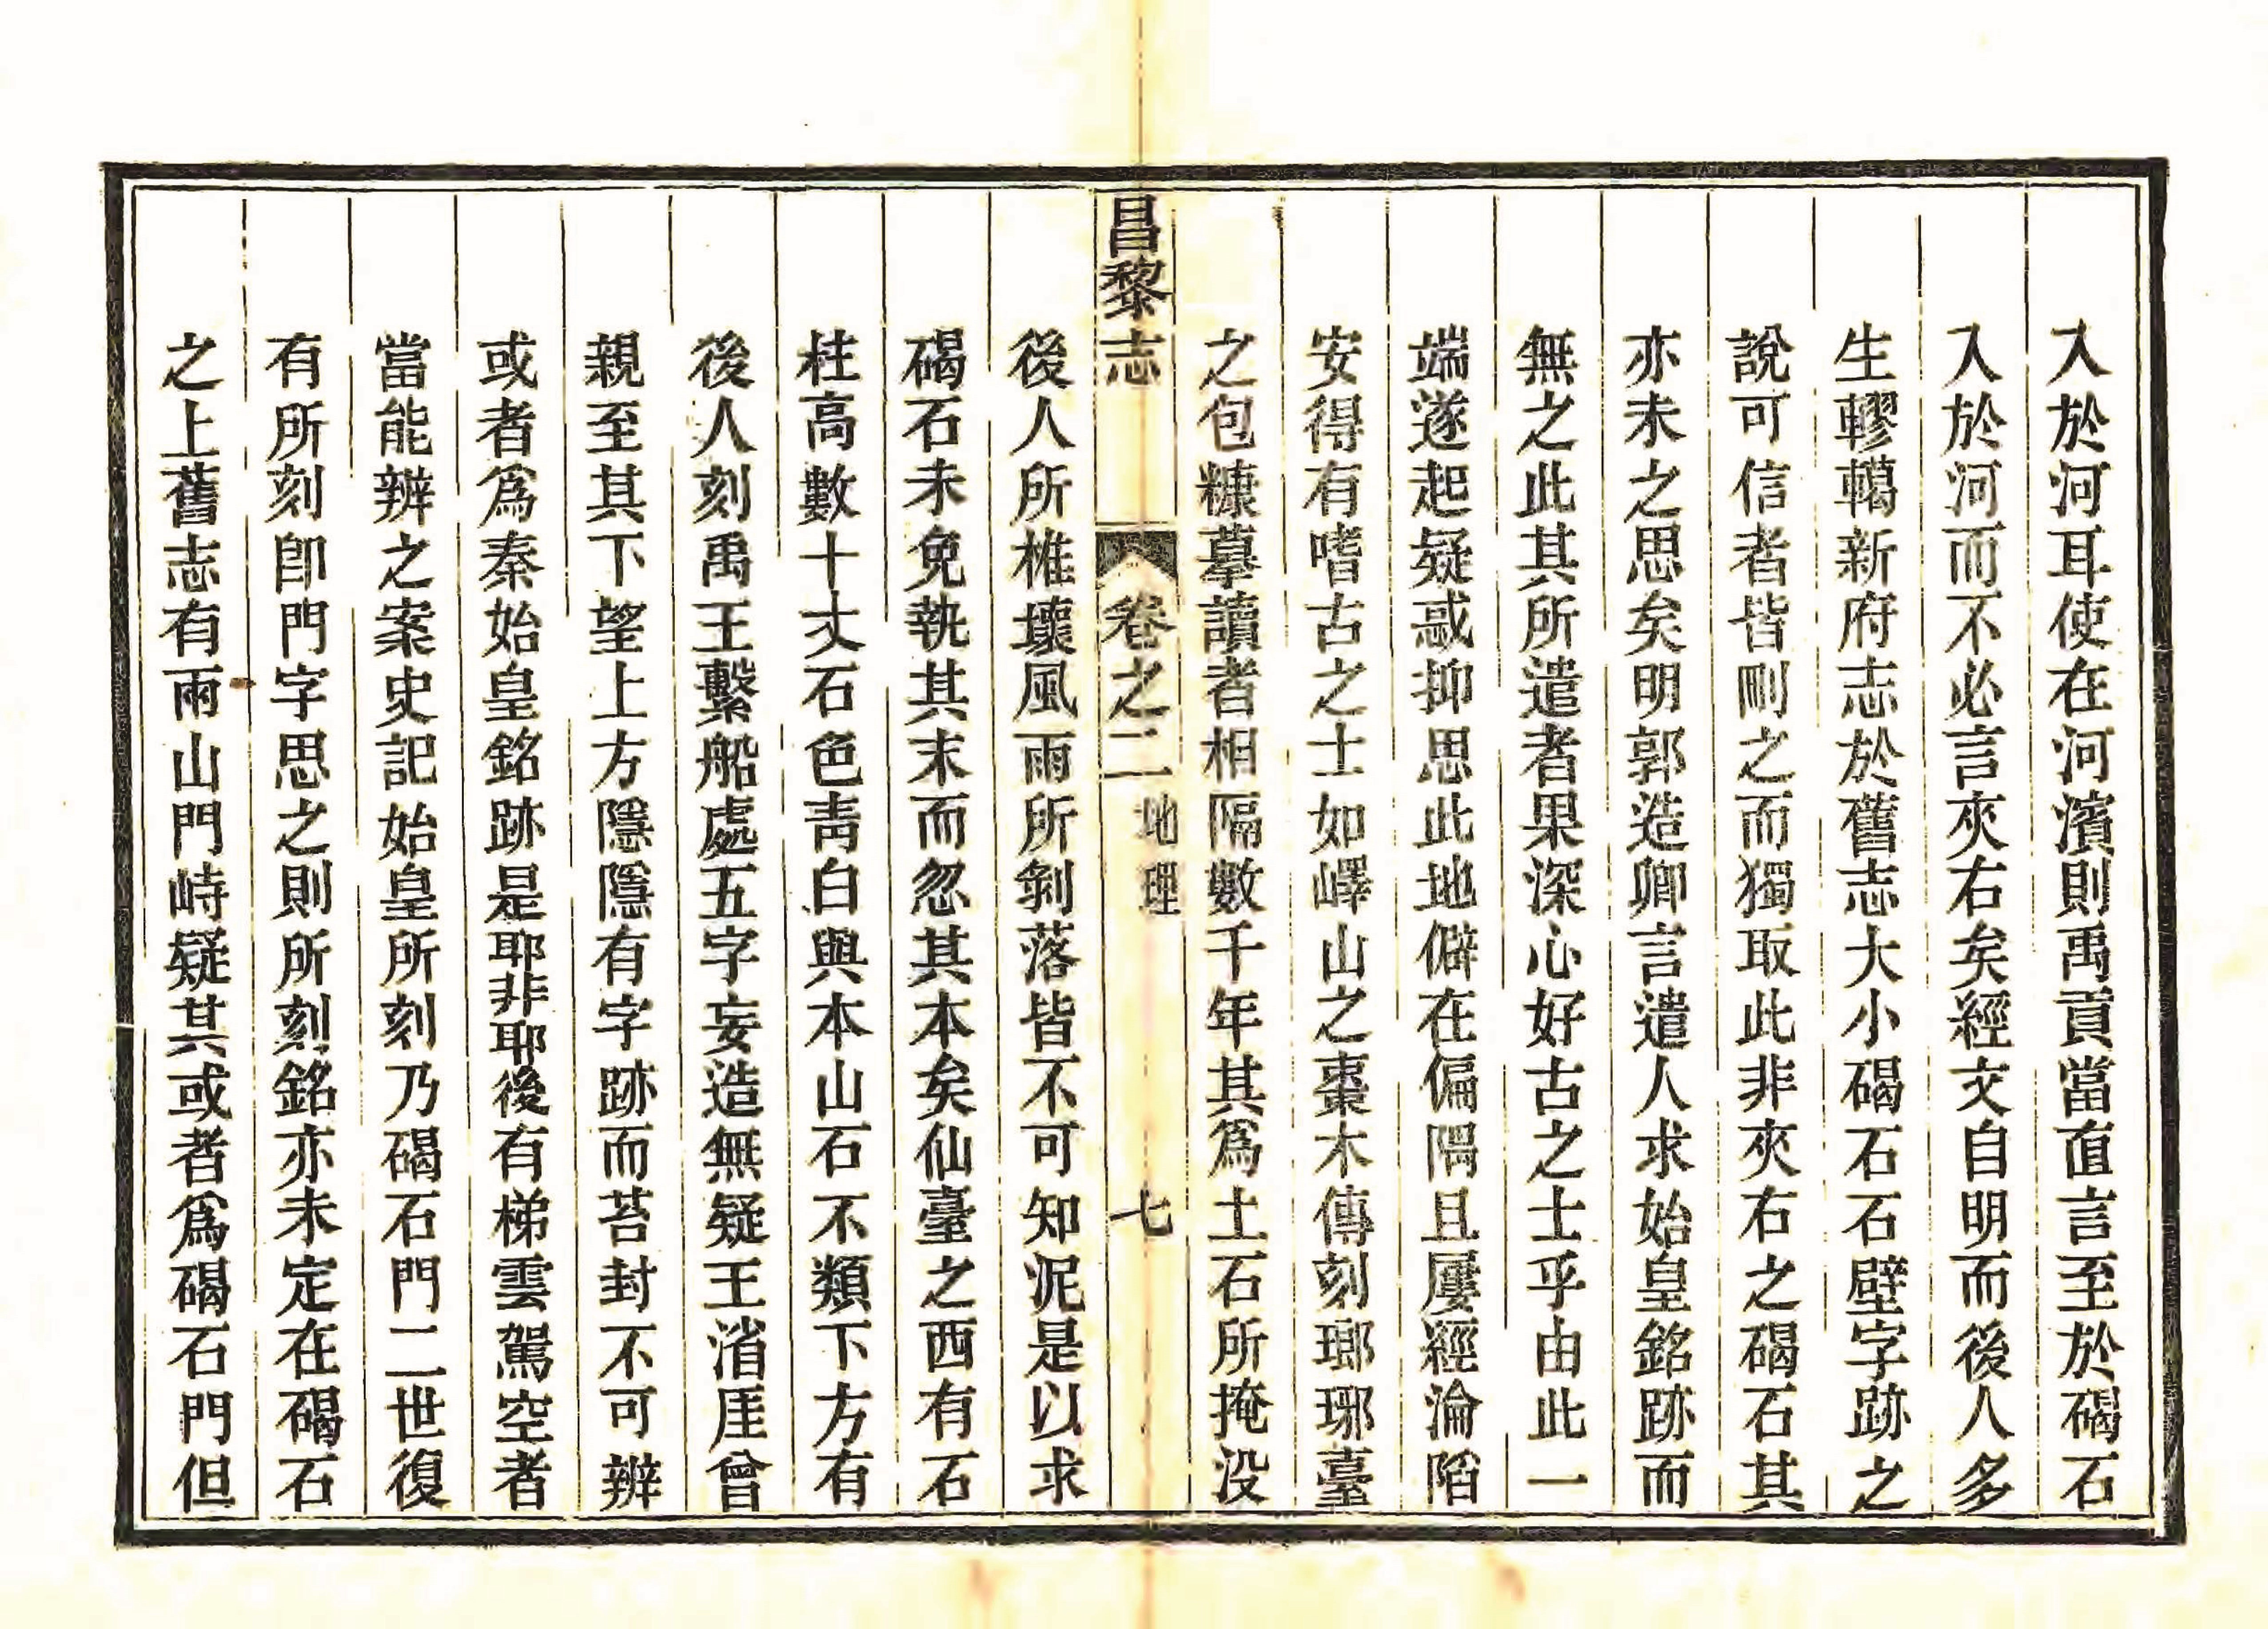 入於河耳使在河濱則禹貢當直言至於碣石
入於河而不必言夾右矣經文自明而後人多
生轇轕新府志於舊志大小碣石石壁字跡之
說可信者皆刪之而獨取此非夾右之碣石其
亦未之思矣明郭造卿言遣人求始皇銘跡而
無之此其所遣者果深心好古之士乎由此一
端遂起疑惑抑思此地僻在偏隅且屢經淪陷
安得有嗜古之士如嶧山之棗木傳刻瑯琊臺
之包糠摹讀者相隔數千年其爲土石所掩没
昌黎志 卷之二 地理 七
後人所椎壞風雨所剝落皆不可知泥是以求
碣石未免執其末而忽其本矣仙臺之西有石
柱高數十丈石色靑白與本山石不類下方有
後人刻禹王繫船處五字妄造無疑王渻厓曾
親至其下望上方隱隱有字跡而苔封不可辨
或者爲秦始皇銘跡是耶非耶後有梯雲駕空者
當能辨之案史記始皇所刻乃碣石門二世復
有所刻卽門字思之則所刻銘亦未定在碣石
之上舊志有兩山門峙疑其或者爲碣石門但